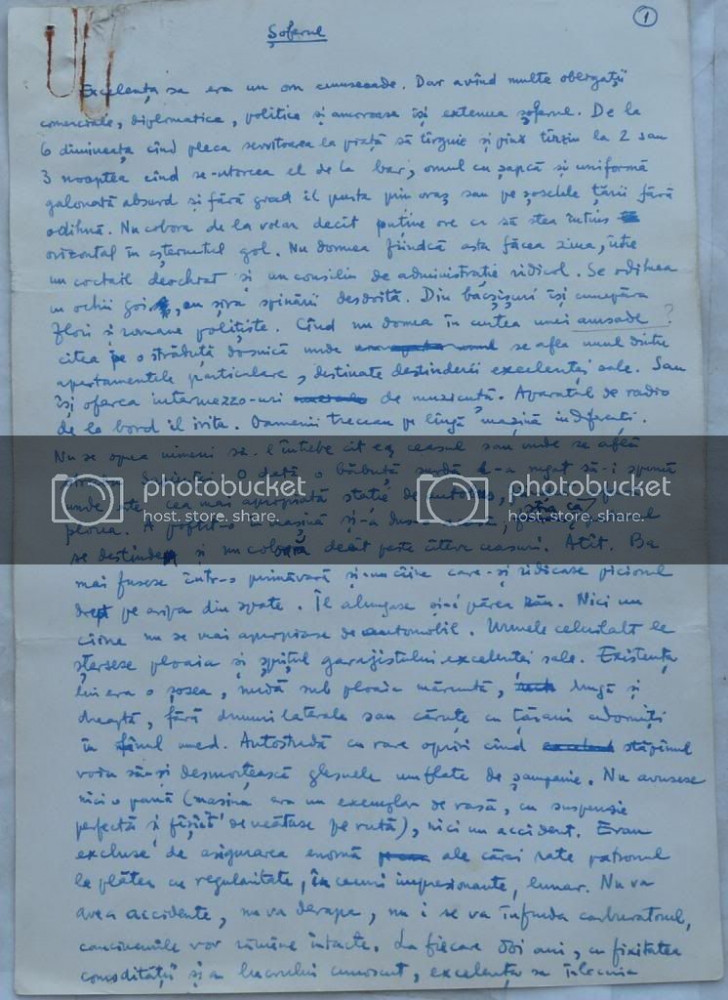 Șoferul
1
Excelența sa era un om cumsecade. Dar avînd multe obligații
comerciale, diplomatice, politice și amoroase își extenua șoferul. De la
6 dimineața cînd pleca servitoarea la piață să tîrguie și pînă tîrziu la 2 sau
3 noaptea cînd se-ntorcea el de la bar, omul cu șapcă și uniformă
galonată absurd și fără grad îl purta prin oraș sau pe șoselele țării fără
odihnă. Nu cobora de la volan decît puține ore ca să stea întins
orizontal în așternutul gol. Nu dormea fiindcă asta făcea ziua, între
un coctail deochiat și un consiliu de administrație ridicol. Se odihnea
cu ochii goi, cu șira spinării Din bacșișuri își cumpăra
flori și romane polițiste. Cînd nu dormea în curtea unei ?
citea pe o străduță dosnică unde se afla unul dintre
apartamentele particulare, destinate destinderii excelenței sale. Sau
își oferea intermezzo-uri de muzicuță. Aparatul de radio
de la bord îl irita. Oamenii treceau pe lîngă mașină indiferenți.
Nu se oprea nimeni să-l întrebe cît e ceasul sau unde se află
O dată o băbuță surdă l-a rugat să-i spună
unde este cea mai apropiată stație de
ploua. A poftit-o în mașină și-a dus-o
se destindea și nu cobora decît peste cîteva ceasuri. Atît. Ba
mai fusese într-o primăvară și-un cîine care-și ridicase piciorul
drept pe aripa din spate. Îl alungase și-i părea rău. Nici un
cîine nu se mai apropiase de automobil. Urmele celuilalt le
ștersese ploaia și șprițul garajistului excelenței sale. Existența
lui era o șosea, udă sub ploaia măruntă, lungă și
dreaptă, fără drumuri laterale sau căruțe cu țărani adormiți
în fînul umed. Autostradă cu rare opriri cînd stăpînul
voia să-și desmorțească gleznele umflate de șampanie. Nu avusese
nici o pană (mașina era un exemplar de rasă, cu suspensie
perfectă și de pe rută), nici un accident. Erau
excluse de asigurarea enormă ale cărei rate patronul
le plătea cu regularitate, în cecuri impresionante, lunar. Nu va
avea accidente, nu va derapa, nu i se va înfunda carburatorul,
cauciucurile vor rămîne intacte. La fiecare doi ani, cu fixitatea
comodității și a lucrului cunoscut, excelența sa înlocuia
photobucket
host. store. share.
photobucket
host. store. share.